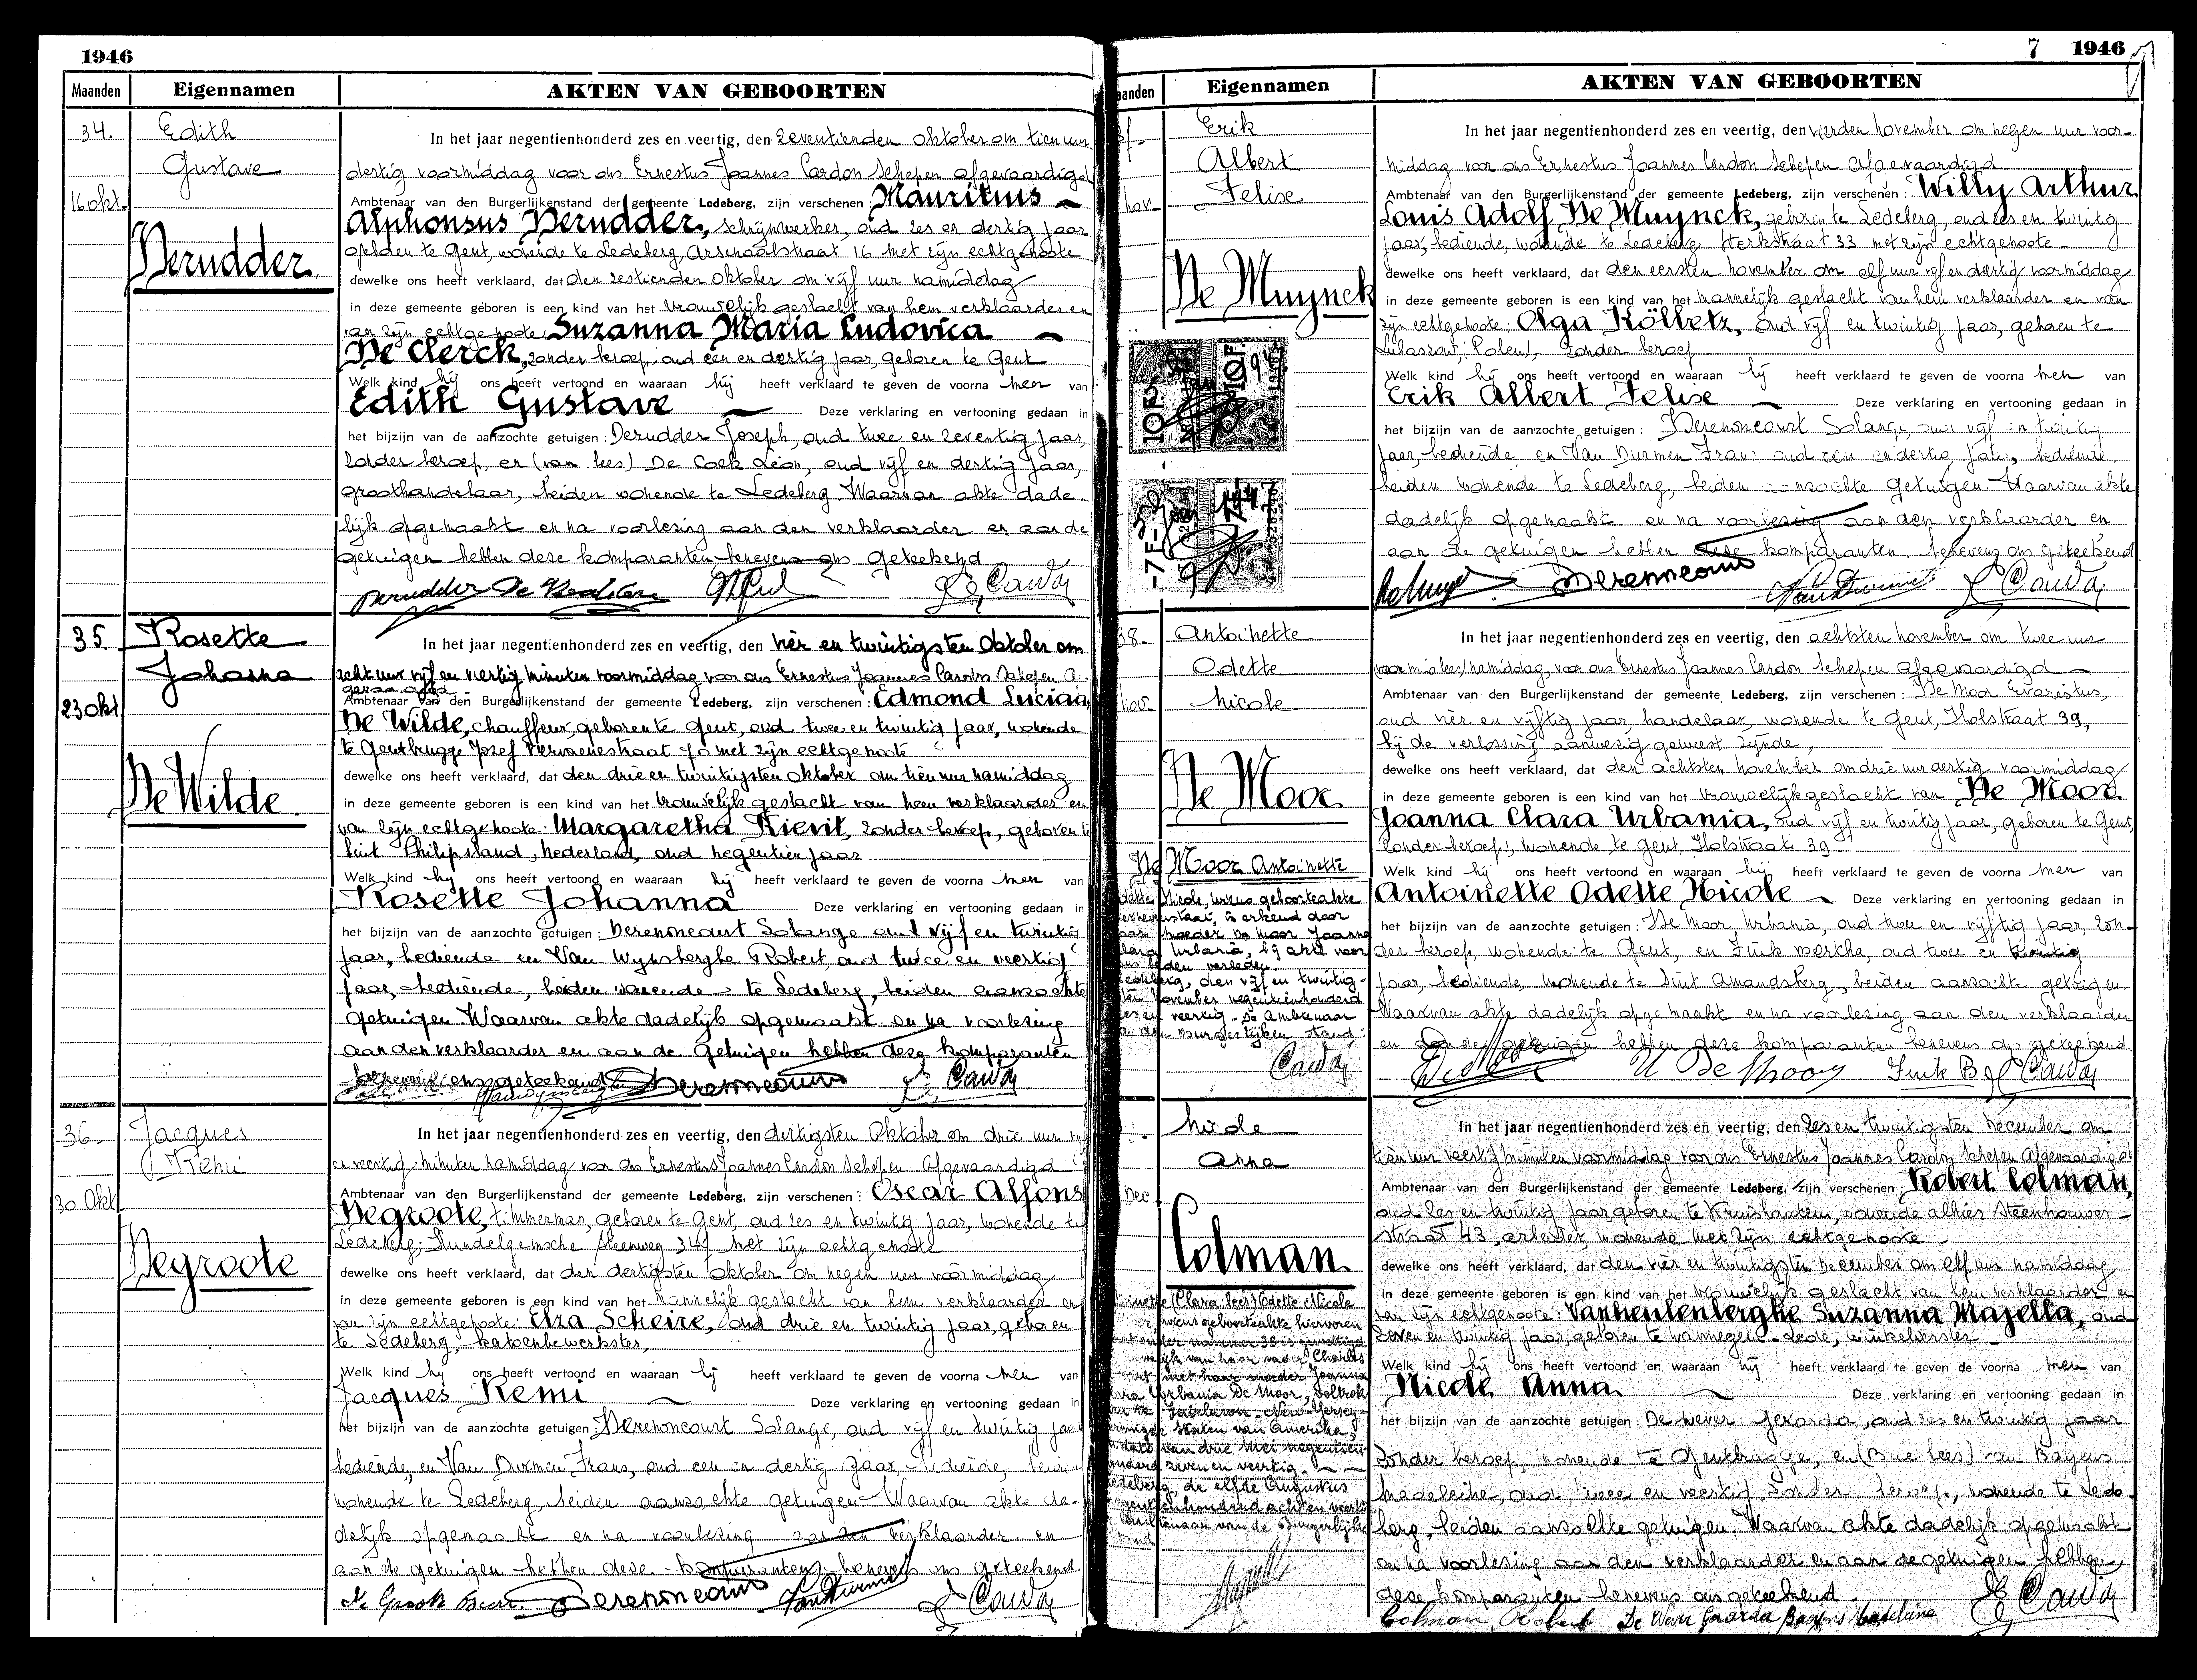 1946
Maanden Eigennamen AKTEN VAN GEBOORTEN
34. Edith
Gustave
16 okt.
Derudder
In het jaar negentienhonderd zes en veertig, den zeventienden oktober om tien uur
dertig voormiddag voor ons Ernestus Joannes Cardon Schepen afgevaardigd
Ambtenaar van den Burgerlijkenstand der gemeente Ledeberg, zijn verschenen: Mauritius
Alphonsus Derudder, schrijnwerker, oud zes en dertig jaar
geboren te Gent, wonende te Ledeberg, Arsenaalstraat 16 met zijn echtgenoote
dewelke ons heeft verklaard, dat den zestienden oktober om vijf uur namiddag
in deze gemeente geboren is een kind van het vrouwelijk geslacht van hem verklaarder en
van zijn echtgenoote: Suzanna Maria Ludovica
De Clerck, zonder beroep, oud een en dertig jaar, geboren te Gent
Welk kind hij ons heeft vertoond en waaraan hij heeft verklaard te geven de voorna men van
Edith Gustave Deze verklaring en vertooning gedaan in
het bijzijn van de aanzochte getuigen: Derudder Joseph, oud twee en zeventig jaar,
zonder beroep, en (van lees) De Cock Léon, oud vijf en dertig jaar,
groothandelaar, beiden wonende te Ledeberg. Waarvan akte dade-
lijk opgemaakt en na voorlezing aan den verklaarder en aan de
getuigen hebben deze komparanten benevens ons geteekend
Derudder
35. Rosette
Johanna
23 okt
De Wilde
In het jaar negentienhonderd zes en veertig, den vier en twintigsten Oktober om
acht uur vijf en veertig minuten voormiddag voor ons Ernestus Joannes Cardon Schepen
Ambtenaar van den Burgerlijkenstand der gemeente Ledeberg, zijn verschenen: Edmond Luciaan
De Wilde, chauffeur, geboren te Gent, oud twee en twintig jaar, wonende
te Gentbrugge Jozef Vervaenestraat met zijn echtgenoote
dewelke ons heeft verklaard, dat den drie en twintigsten oktober om tien uur namiddag
in deze gemeente geboren is een kind van het vrouwelijk geslacht van hem verklaarder en
van zijn echtgenoote: Margaretha Kievit, zonder beroep, geboren te
Sint Philipsland, Nederland, oud negentien jaar
Welk kind hij ons heeft vertoond en waaraan hij heeft verklaard te geven de voorna men van
Rosette Johanna Deze verklaring en vertooning gedaan in
het bijzijn van de aanzochte getuigen: Derenoncourt Solange oud vijf en twintig
jaar, bediende en Van Wynsberghe Robert, oud twee en veertig
jaar, bediende, beiden wonende te Ledeberg, beiden aanzochte
getuigen. Waarvan akte dadelijk opgemaakt en na voorlezing
aan den verklaarder en aan de getuigen hebben deze komparanten
benevens ons geteekend
36. Jacques
Remi
30 Okt
Degroote
In het jaar negentienhonderd zes en veertig, den dertigsten Oktober om drie uur
en veertig minuten namiddag voor ons Ernestus Joannes Cardon Schepen Afgevaardigd
Ambtenaar van den Burgerlijkenstand der gemeente Ledeberg, zijn verschenen: Oscar Alfons
Degroote, timmerman, geboren te Gent, oud zes en twintig jaar, wonende te
Ledeberg, Hundelgemsche steenweg met zijn echtgenoote
dewelke ons heeft verklaard, dat den dertigsten Oktober om negen uur voormiddag
in deze gemeente geboren is een kind van het mannelijk geslacht van hem verklaarder en
van zijn echtgenoote: Elza Scheire, oud drie en twintig jaar, geboren
te Ledeberg, katoenbewerkster,
Welk kind hij ons heeft vertoond en waaraan hij heeft verklaard te geven de voorna men van
Jacques Remi Deze verklaring en vertooning gedaan in
het bijzijn van de aanzochte getuigen: Derenoncourt Solange, oud vijf en twintig jaar
bediende, en Van Durmen Frans, oud een en dertig jaar, bediende,
wonende te Ledeberg, beiden aanzochte getuigen. Waarvan akte da-
delijk opgemaakt en na voorlezing aan den verklaarder en
aan de getuigen hebben deze komparanten benevens ons geteekend
7 1946
Maanden Eigennamen AKTEN VAN GEBOORTEN
Erik
Albert
Felix
nov.
De Muynck
In het jaar negentienhonderd zes en veertig, den vierden november om negen uur voor-
middag voor ons Ernestus Joannes Cardon Schepen afgevaardigd
Ambtenaar van den Burgerlijkenstand der gemeente Ledeberg, zijn verschenen: Willy Arthur
Louis Adolf De Muynck, geboren te Ledeberg, oud zes en twintig
jaar, bediende, wonende te Ledeberg, Kerkstraat 33 met zijn echtgenoote
dewelke ons heeft verklaard, dat den eersten november om elf uur vijf en dertig voormiddag
in deze gemeente geboren is een kind van het mannelijk geslacht van hem verklaarder en van
zijn echtgenoote: Olga oud vijf en twintig jaar, geboren te
(Polen), zonder beroep
Welk kind hij ons heeft vertoond en waaraan hij heeft verklaard te geven de voorna men van
Erik Albert Felix Deze verklaring en vertooning gedaan in
het bijzijn van de aanzochte getuigen: Derenoncourt Solange, oud vijf en twintig
jaar, bediende en Van Durmen Frans oud een en dertig jaar, bediende,
beiden wonende te Ledeberg, beiden aanzochte getuigen. Waarvan akte
dadelijk opgemaakt en na voorlezing aan den verklaarder en
aan de getuigen hebben deze komparanten benevens ons geteekend
38. Antoinette
Odette
Nicole
nov.
De Moor
In het jaar negentienhonderd zes en veertig, den achtsten november om twee uur
voormid (lees) namiddag, voor ons Ernestus Joannes Cardon Schepen afgevaardigd
Ambtenaar van den Burgerlijkenstand der gemeente Ledeberg, zijn verschenen: De Moor Evaristus,
oud vier en vijftig jaar, handelaar, wonende te Gent, Holstraat 39,
bij de verlossing aanwezig geweest zijnde,
dewelke ons heeft verklaard, dat den achtsten november om drie uur dertig voormiddag
in deze gemeente geboren is een kind van het vrouwelijk geslacht van De Moor
Joanna Clara Urbania, oud vijf en twintig jaar, geboren te Gent,
zonder beroep, wonende te Gent, Holstraat 39
Welk kind hij ons heeft vertoond en waaraan hij heeft verklaard te geven de voorna men van
Antoinette Odette Nicole Deze verklaring en vertooning gedaan in
het bijzijn van de aanzochte getuigen: De Moor, Urbania, oud twee en vijftig jaar, zon-
der beroep, wonende te Gent, en Finik Bertha, oud twee en twintig
jaar, bediende, wonende te Sint Amandsberg, beiden aanzochte getuigen.
Waarvan akte dadelijk opgemaakt en na voorlezing aan den verklaarder
en aan de getuigen hebben deze komparanten benevens ons geteekend
De Moor Antoinette
Odette Nicole, wiens geboorteakte
hiernevenstaat, is erkend door
haar moeder De Moor Joanna
Clara Urbania, bij akte voor
ons heden verleden.
Ledeberg, den vijf en twintig-
sten November negentienhonderd
zes en veertig. De Ambtenaar
van den Burgerlijken stand:
Nicole
Anna
Dec
Colman
In het jaar negentienhonderd zes en veertig, den zes en twintigsten December om
tien uur veertig minuten voormiddag voor ons Ernestus Joannes Cardon Schepen Afgevaardigd
Ambtenaar van den Burgerlijkenstand der gemeente Ledeberg, zijn verschenen: Robert Colman,
oud zes en twintig jaar, geboren te Kruishoutem, wonende alhier Steenhouwer-
straat 43, arbeider, wonende met zijn echtgenoote
dewelke ons heeft verklaard, dat den vier en twintigsten December om elf uur namiddag
in deze gemeente geboren is een kind van het vrouwelijk geslacht van hem verklaarder en
van zijn echtgenoote: Vanheulenberghe Suzanna Majella, oud
zeven en twintig jaar, geboren te Wannegem-Lede, winkelierster
Welk kind hij ons heeft vertoond en waaraan hij heeft verklaard te geven de voorna men van
Nicole Anna Deze verklaring en vertooning gedaan in
het bijzijn van de aanzochte getuigen: De Wever Gerarda, oud zes en twintig jaar
zonder beroep, wonende te Gentbrugge, en Bayens
Madeleine, oud twee en veertig, zonder beroep, wonende te Lede-
berg, beiden aanzochte getuigen. Waarvan akte dadelijk opgemaakt
en na voorlezing aan den verklaarder en aan de getuigen hebben
deze komparanten benevens ons geteekend.
Colman Robert De Wever Gerarda Bayens Madeleine
(Clara lees) Odette Nicole
wiens geboorteakte hiervoren
onder nummer 38 is gewettigd
van haar vader Charles
met haar moeder Joanna
Clara Urbania De Moor, voltrok-
New-Jersey
Vereenigde Staten van Amerika,
van drie Mei negentien-
honderd zeven en veertig.
Ledeberg, de elfde Augustus
negentienhonderd acht en veertig
Ambtenaar van de Burgerlijke
stand